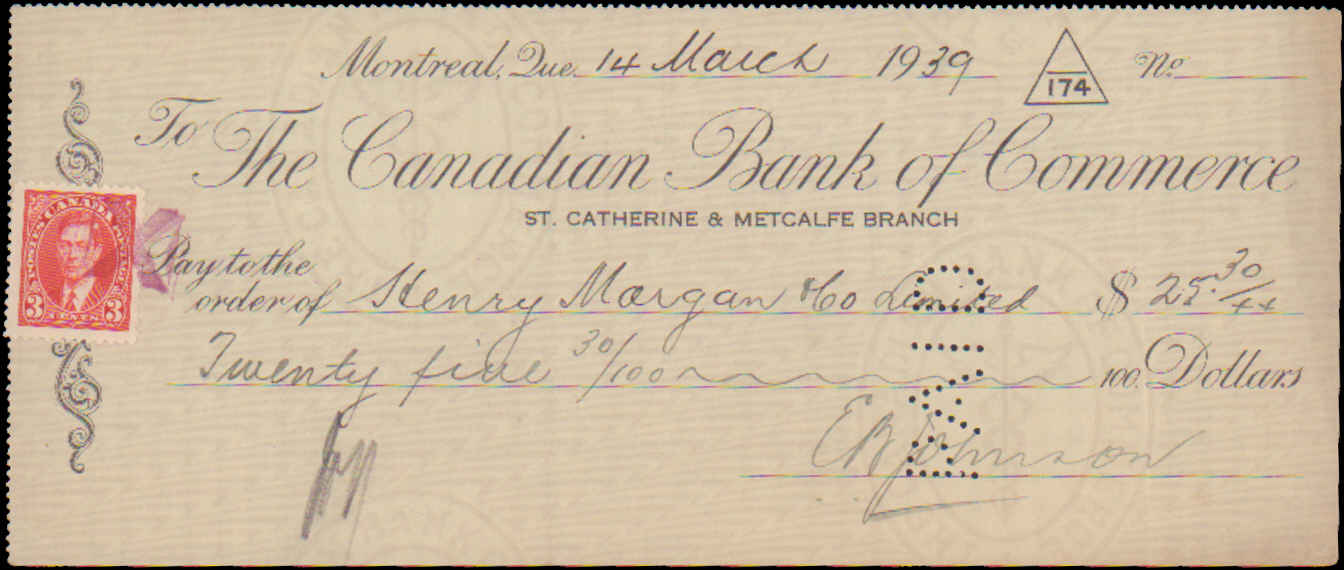 Montreal, Que. 14 March 1939 174 No.
To The Canadian Bank of Commerce
ST. CATHERINE & METCALFE BRANCH
POSTES CANADA POSTAGE
3 CENTS 3
Pay to the
order of Henry Morgan & Co Limited $ 25.30/xx
Twenty five 30/100 100 Dollars
EB Johnson
PAID